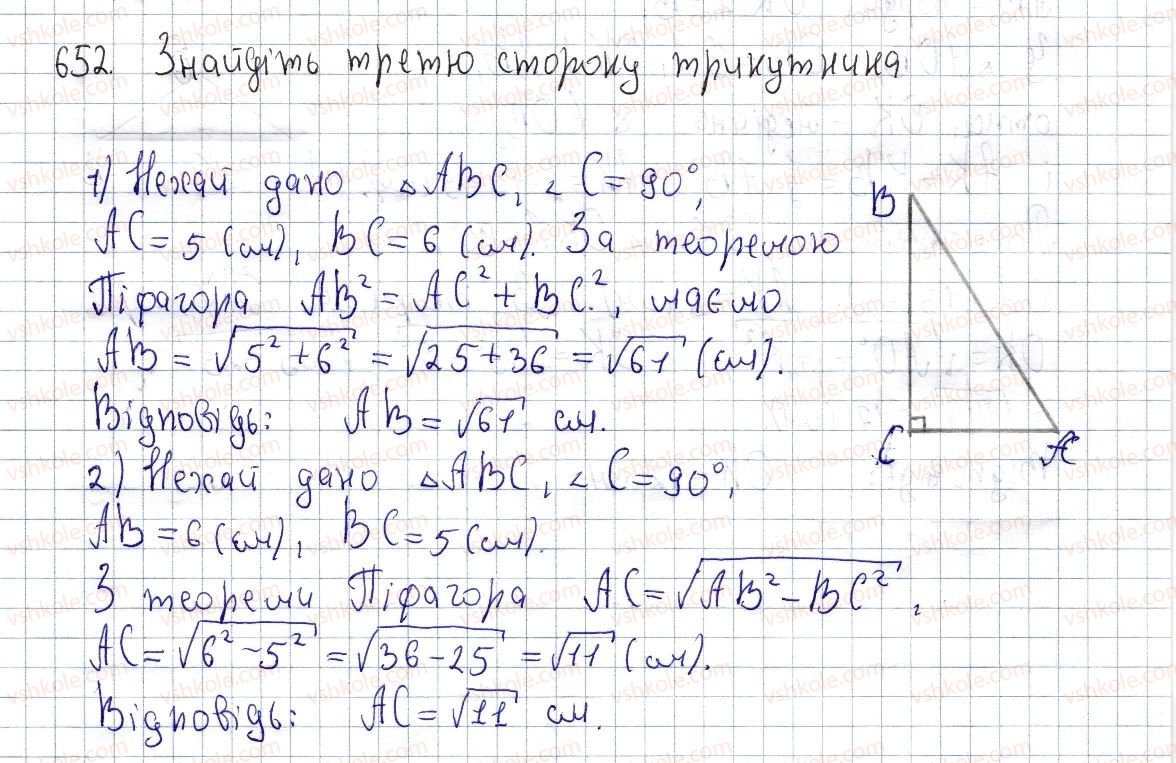 652. Знайдіть третю сторону трикутника
1) Нехай дано △ABC, ∠C = 90°,
AC = 5 (см), BC = 6 (см). За теоремою
Піфагора AB² = AC² + BC², маємо
AB = √(5² + 6²) = √(25 + 36) = √61 (см).
Відповідь: AB = √61 см.
2) Нехай дано △ABC, ∠C = 90°,
AB = 6 (см), BC = 5 (см).
З теореми Піфагора AC = √(AB² − BC²),
AC = √(6² − 5²) = √(36 − 25) = √11 (см).
Відповідь: AC = √11 см.
B
C
A